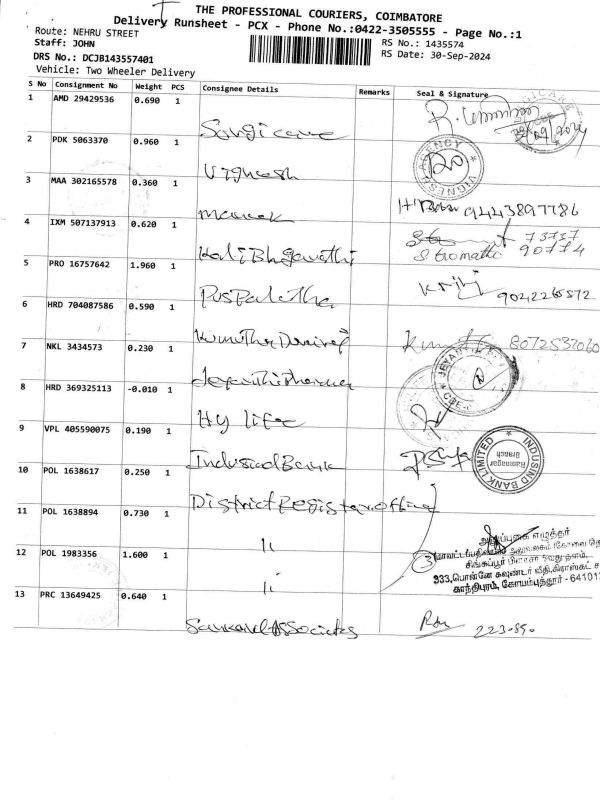 THE PROFESSIONAL COURIERS, COIMBATORE
Delivery Runsheet - PCX - Phone No.:0422-3505555 - Page No.:1
Route: NEHRU STREET
Staff: JOHN
DRS No.: DCJB143557401
Vehicle: Two Wheeler Delivery
RS No.: 1435574
RS Date: 30-Sep-2024
S No Consignment No Weight PCS Consignee Details Remarks Seal & Signature
1 AMD 29429536 0.690 1
Surgicare
2 PDK 5063370 0.960 1
Vignesh
VIGNESH AGENCY
3 MAA 302165578 0.360 1
9443897786
4 IXM 507137913 0.620 1
Kali Bhgavathi
73737
90774
5 PRO 16757642 1.960 1
Puspalatha
9042265572
6 HRD 704087586 0.590 1
7 NKL 3434573 0.230 1
8072532060
8 HRD 369325113 -0.010 1
Hy life
9 VPL 405590075 0.190 1
Indusind Bank
INDUSIND BANK LIMITED
Ramnagar Branch
10 POL 1638617 0.250 1
District Register office
11 POL 1638894 0.730 1
〃
12 POL 1983356 1.600 1
〃
3
எழுத்தர்
333,பொன்னே கவுண்டர் வீதி,கிராஸ்கட்
காந்திபுரம், கோயம்புத்தூர் - 64101
13 PRC 13649425 0.640 1
Associates